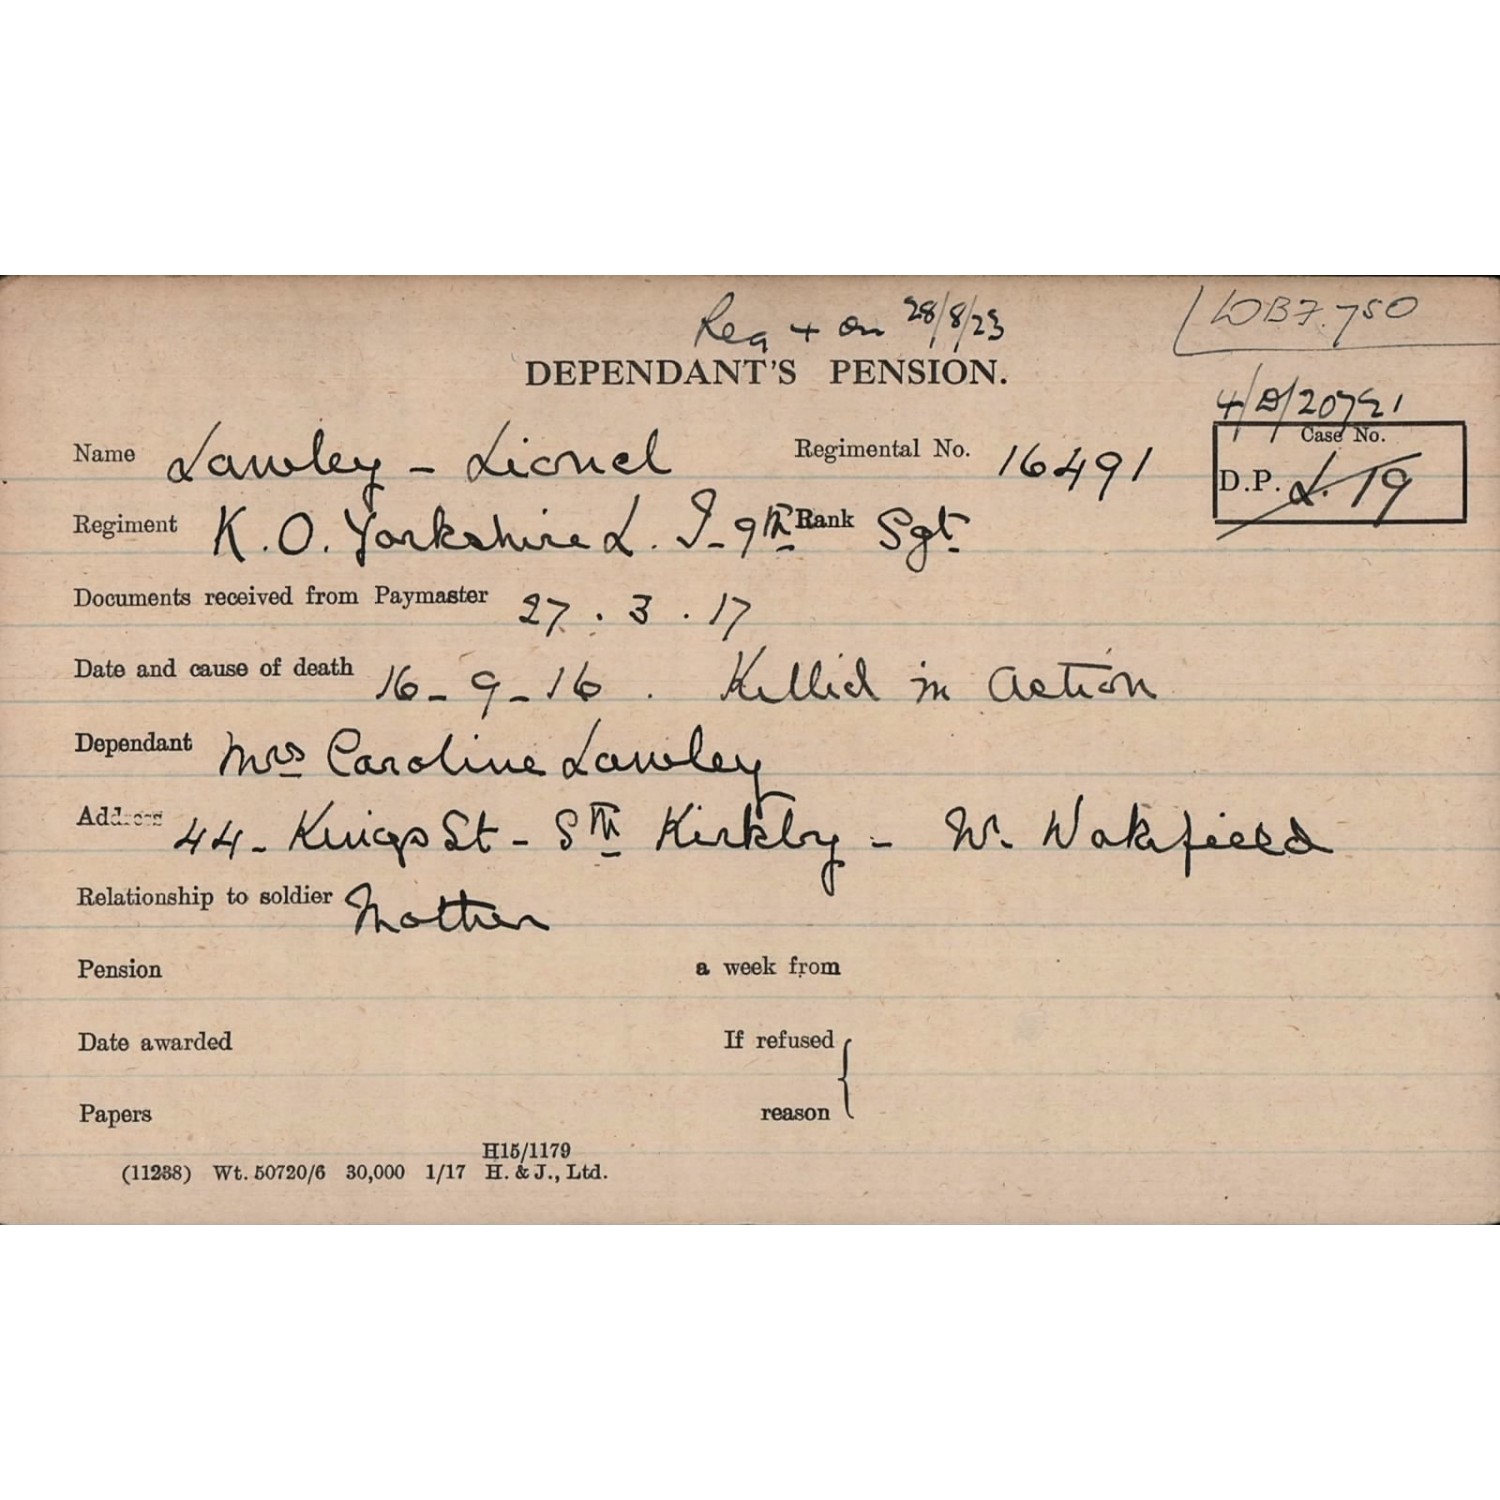 Reg + on 28/8/23
LOB7.750
DEPENDANT'S PENSION.
4/D/20721
Case No.
D.P. L.19
Name Lawley - Lionel Regimental No. 16491
Regiment K.O. Yorkshire L. I - 9th Rank Sgt
Documents received from Paymaster 27.3.17
Date and cause of death 16-9-16. Killed in action
Dependant Mrs Caroline Lawley
Address 44 - Kings St - Sth Kirkby - Nr. Wakefield
Relationship to soldier Mother
Pension a week from
Date awarded If refused
Papers reason
H15/1179
(11238) Wt. 50720/6 30,000 1/17 H. & J., Ltd.